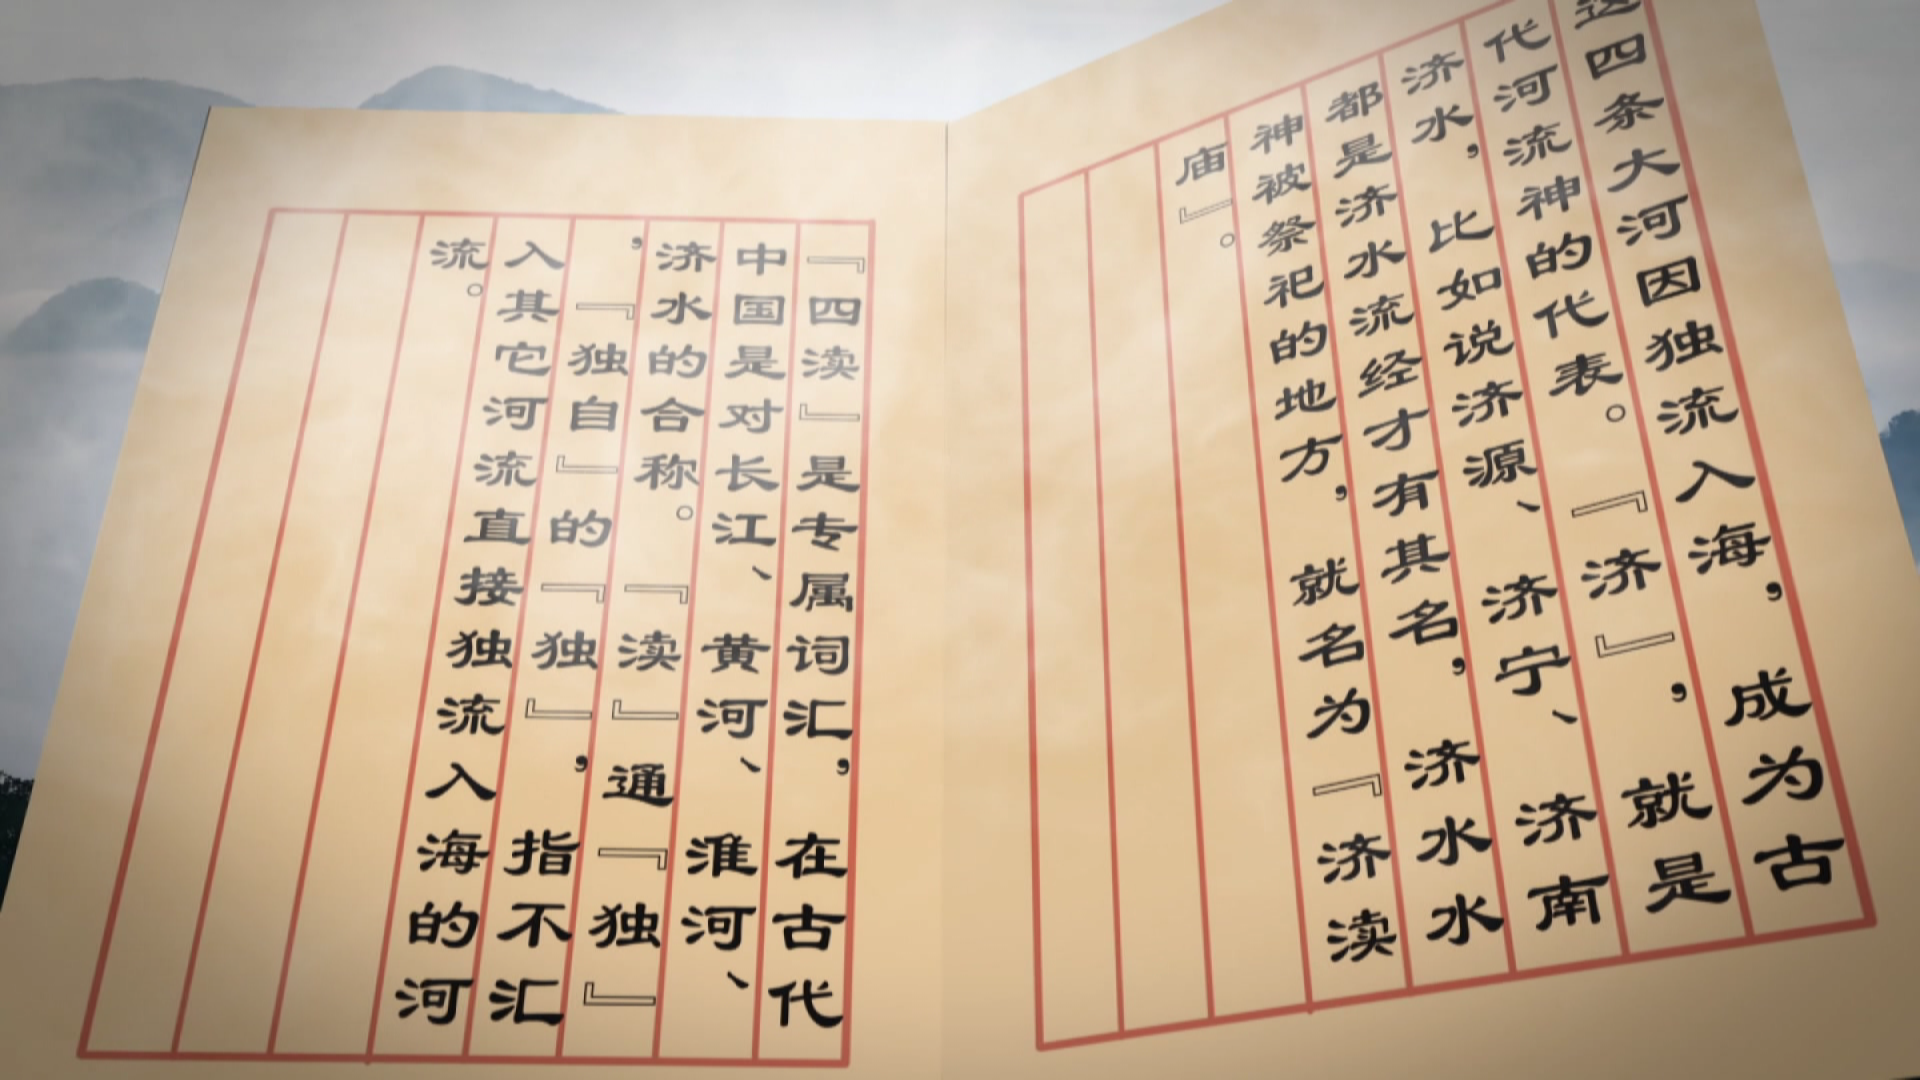 『四渎』是专属词汇，在古代
中国是对长江、黄河、淮河、
济水的合称。『渎』通『独』
，『独自』的『独』，指不汇
入其它河流直接独流入海的河
流。
这四条大河因独流入海，成为古
代河流神的代表。『济』，就是
济水，比如说济源、济宁、济南
都是济水流经才有其名，济水水
神被祭祀的地方，就名为『济渎
庙』。